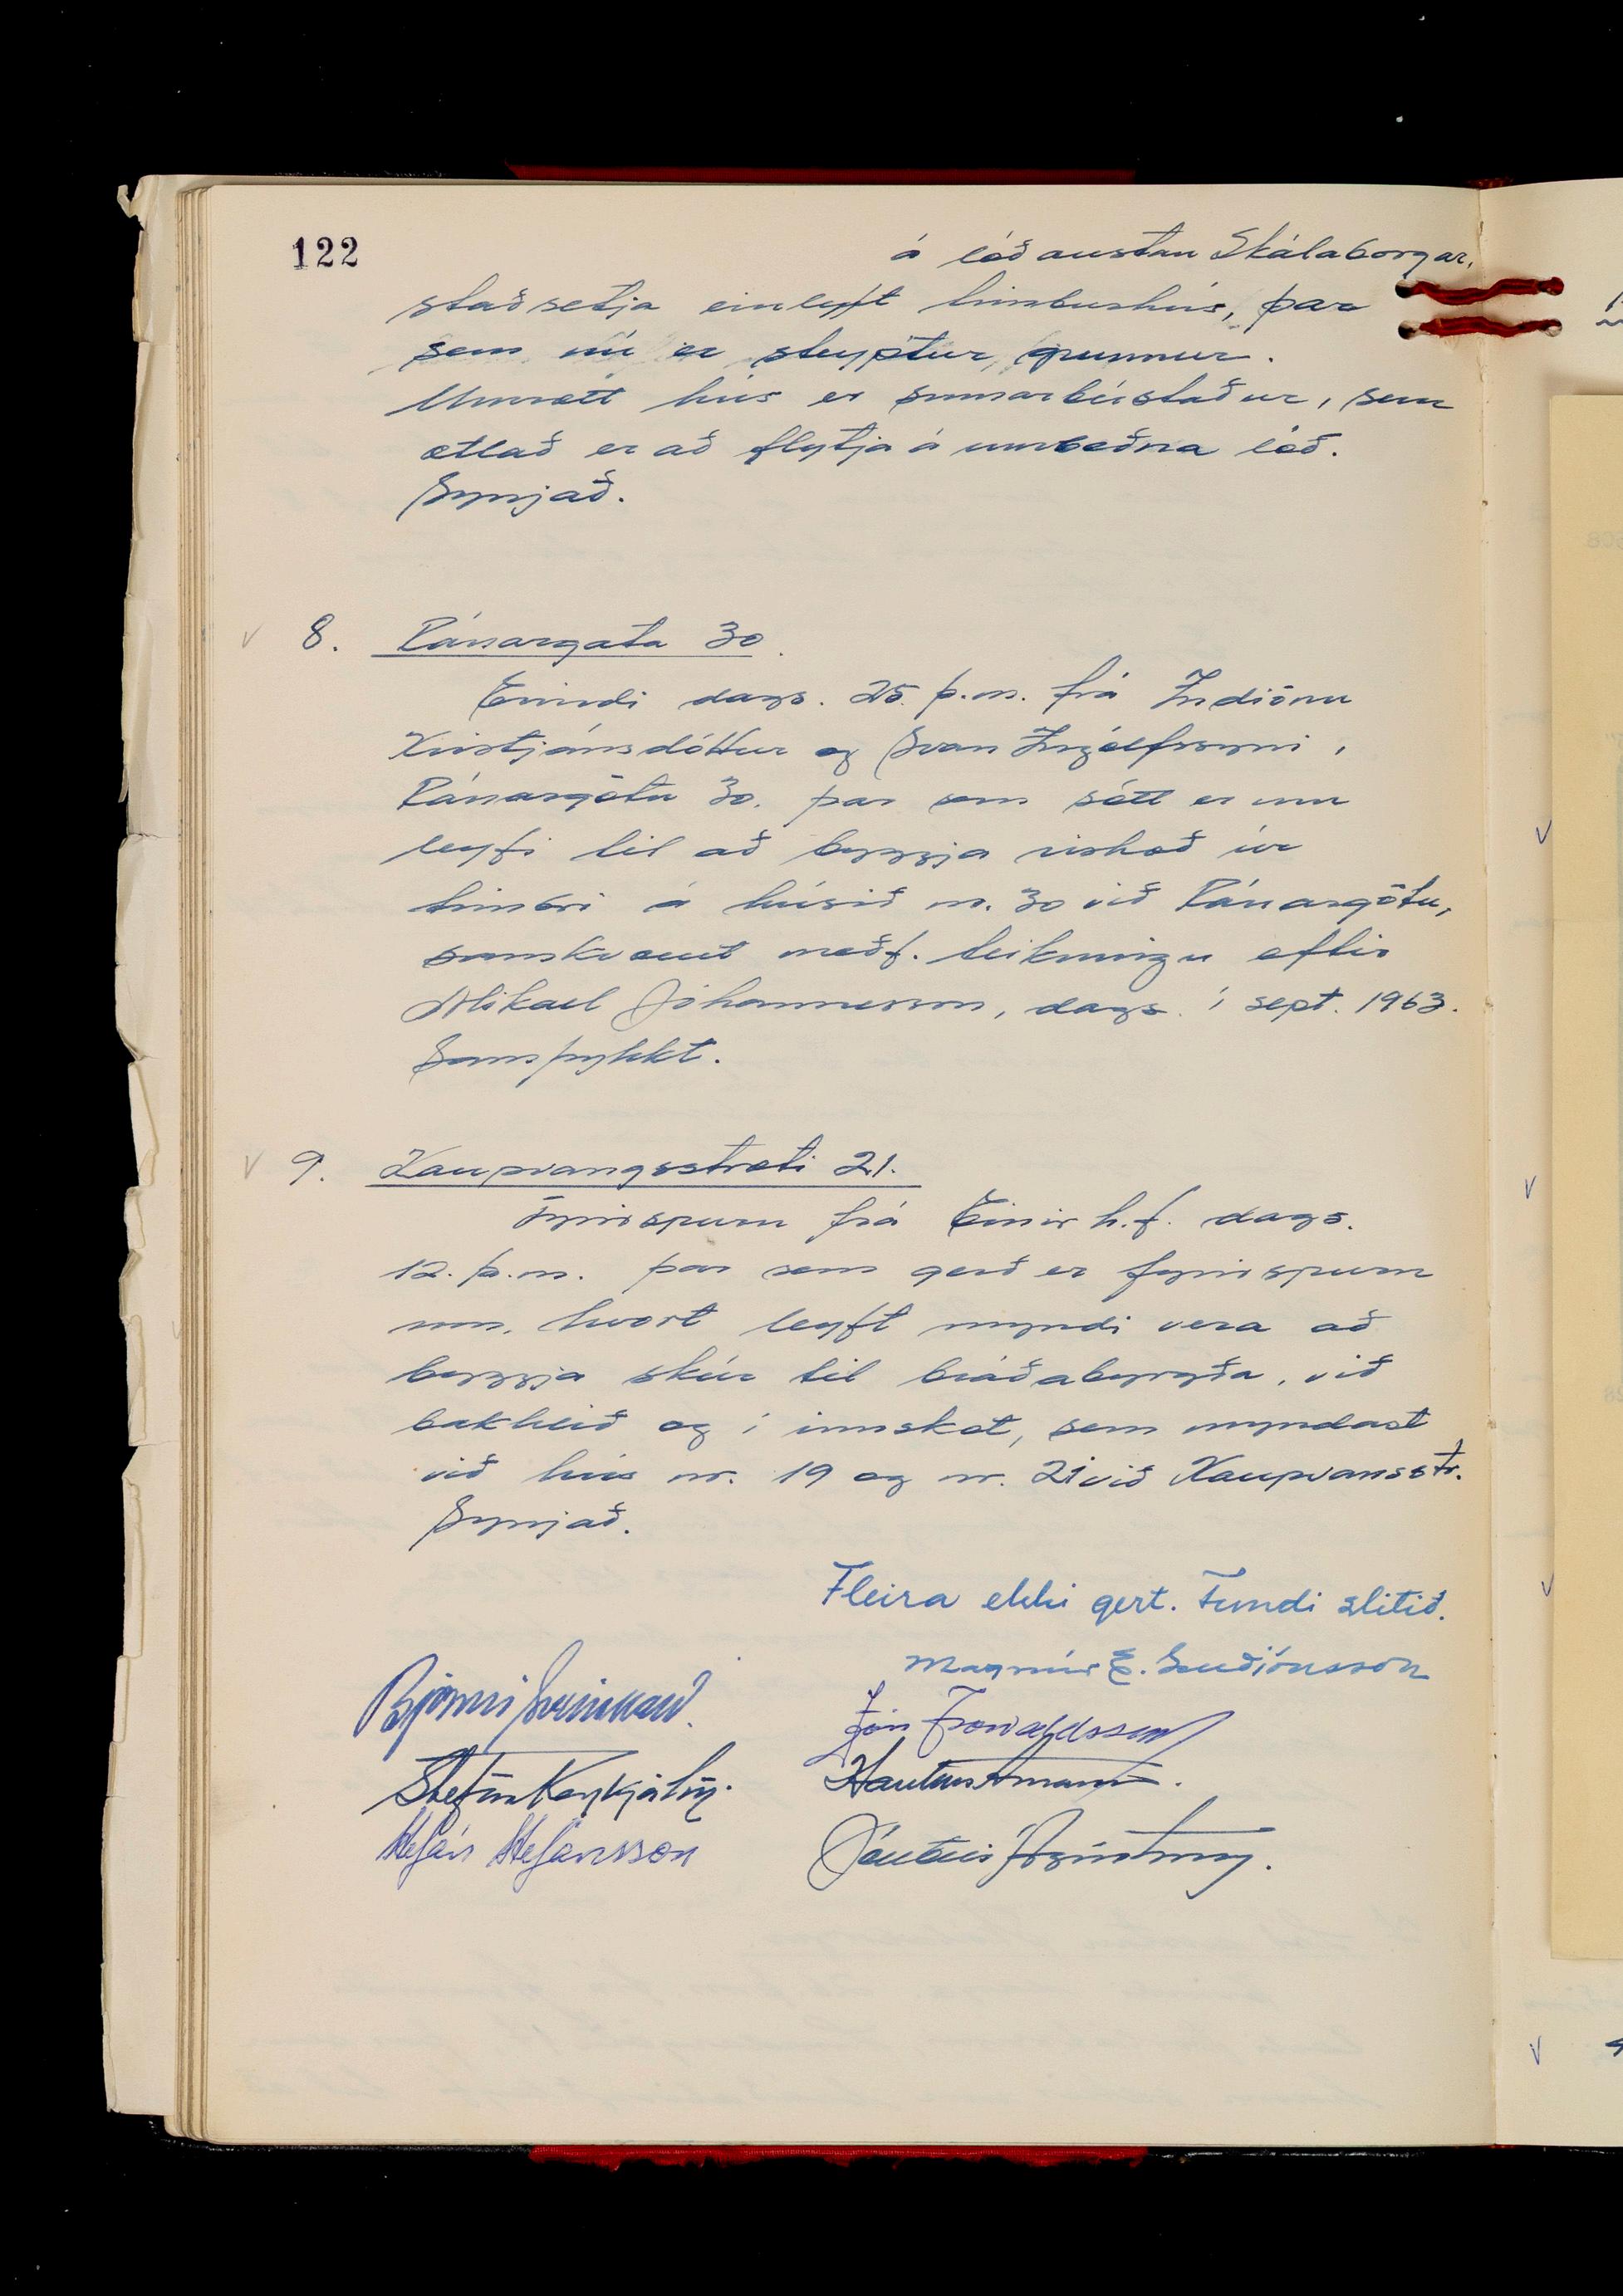 122
á lóð austan Skálaborgar,
staðsetja einlyft timburhús, þar
sem nú er steyptur, grunnur.
Umrætt hús er sumarbústaður, sem
ætlað er að flytja á umbeðna lóð.
Synjað.
8. Ránargata 30.
Erindi dags. 25. þ.m. frá Indíönu
Kristjánsdóttur og Svan Ingólfssyni,
Ránargötu 30. þar sem sótt er um
leyfi til að byggja rishæð úr
timbri á húsið nr. 30 við Ránargötu,
samkvæmt meðf. teikningu eftir
Mikael Jóhannesson, dags. í sept. 1963.
Samþykkt.
9. Kaupvangsstræti 21.
Fyrirspurn frá Einir h.f. dags.
12. þ.m. þar sem gerð er fyrirspurn
um, hvort leyft myndi vera að
byggja skúr til bráðabyrgða, við
bakhlið og í innskot, sem myndast
við hús nr. 19 og nr. 21 við Kaupvansstr.
Synjað.
Fleira ekki gert. Fundi slitið.
Magnús E. Guðjónsson
Jón Þorvaldsson
Haukur Árnason.
Stefán Reykjalín.
Stefán Stefánsson